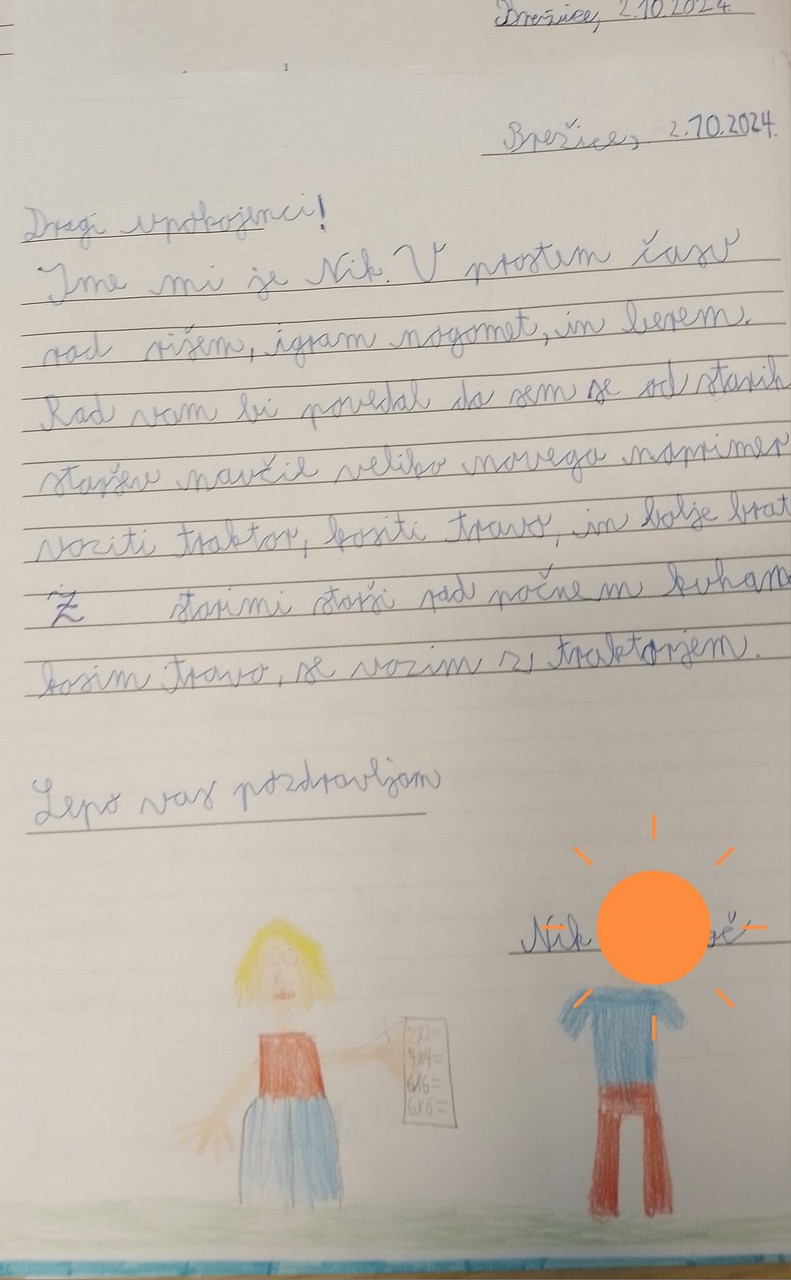 Brežice, 2.10.2024.
Brežice, 2.10.2024.
Dragi upokojenci!
Ime mi je Nik. V prostem času
rad rišem, igram nogomet, in berem.
Rad vam bi povedal da sem se od starih
staršev naučil veliko novega naprimer
voziti traktor, kositi travo, in bolje brat
Ž starimi starši rad počnem kuham
kosim travo, se vozim z traktorjem.
Lepo vas pozdravljam
Nik
2x2=
4x4=
6x6=
6x6=